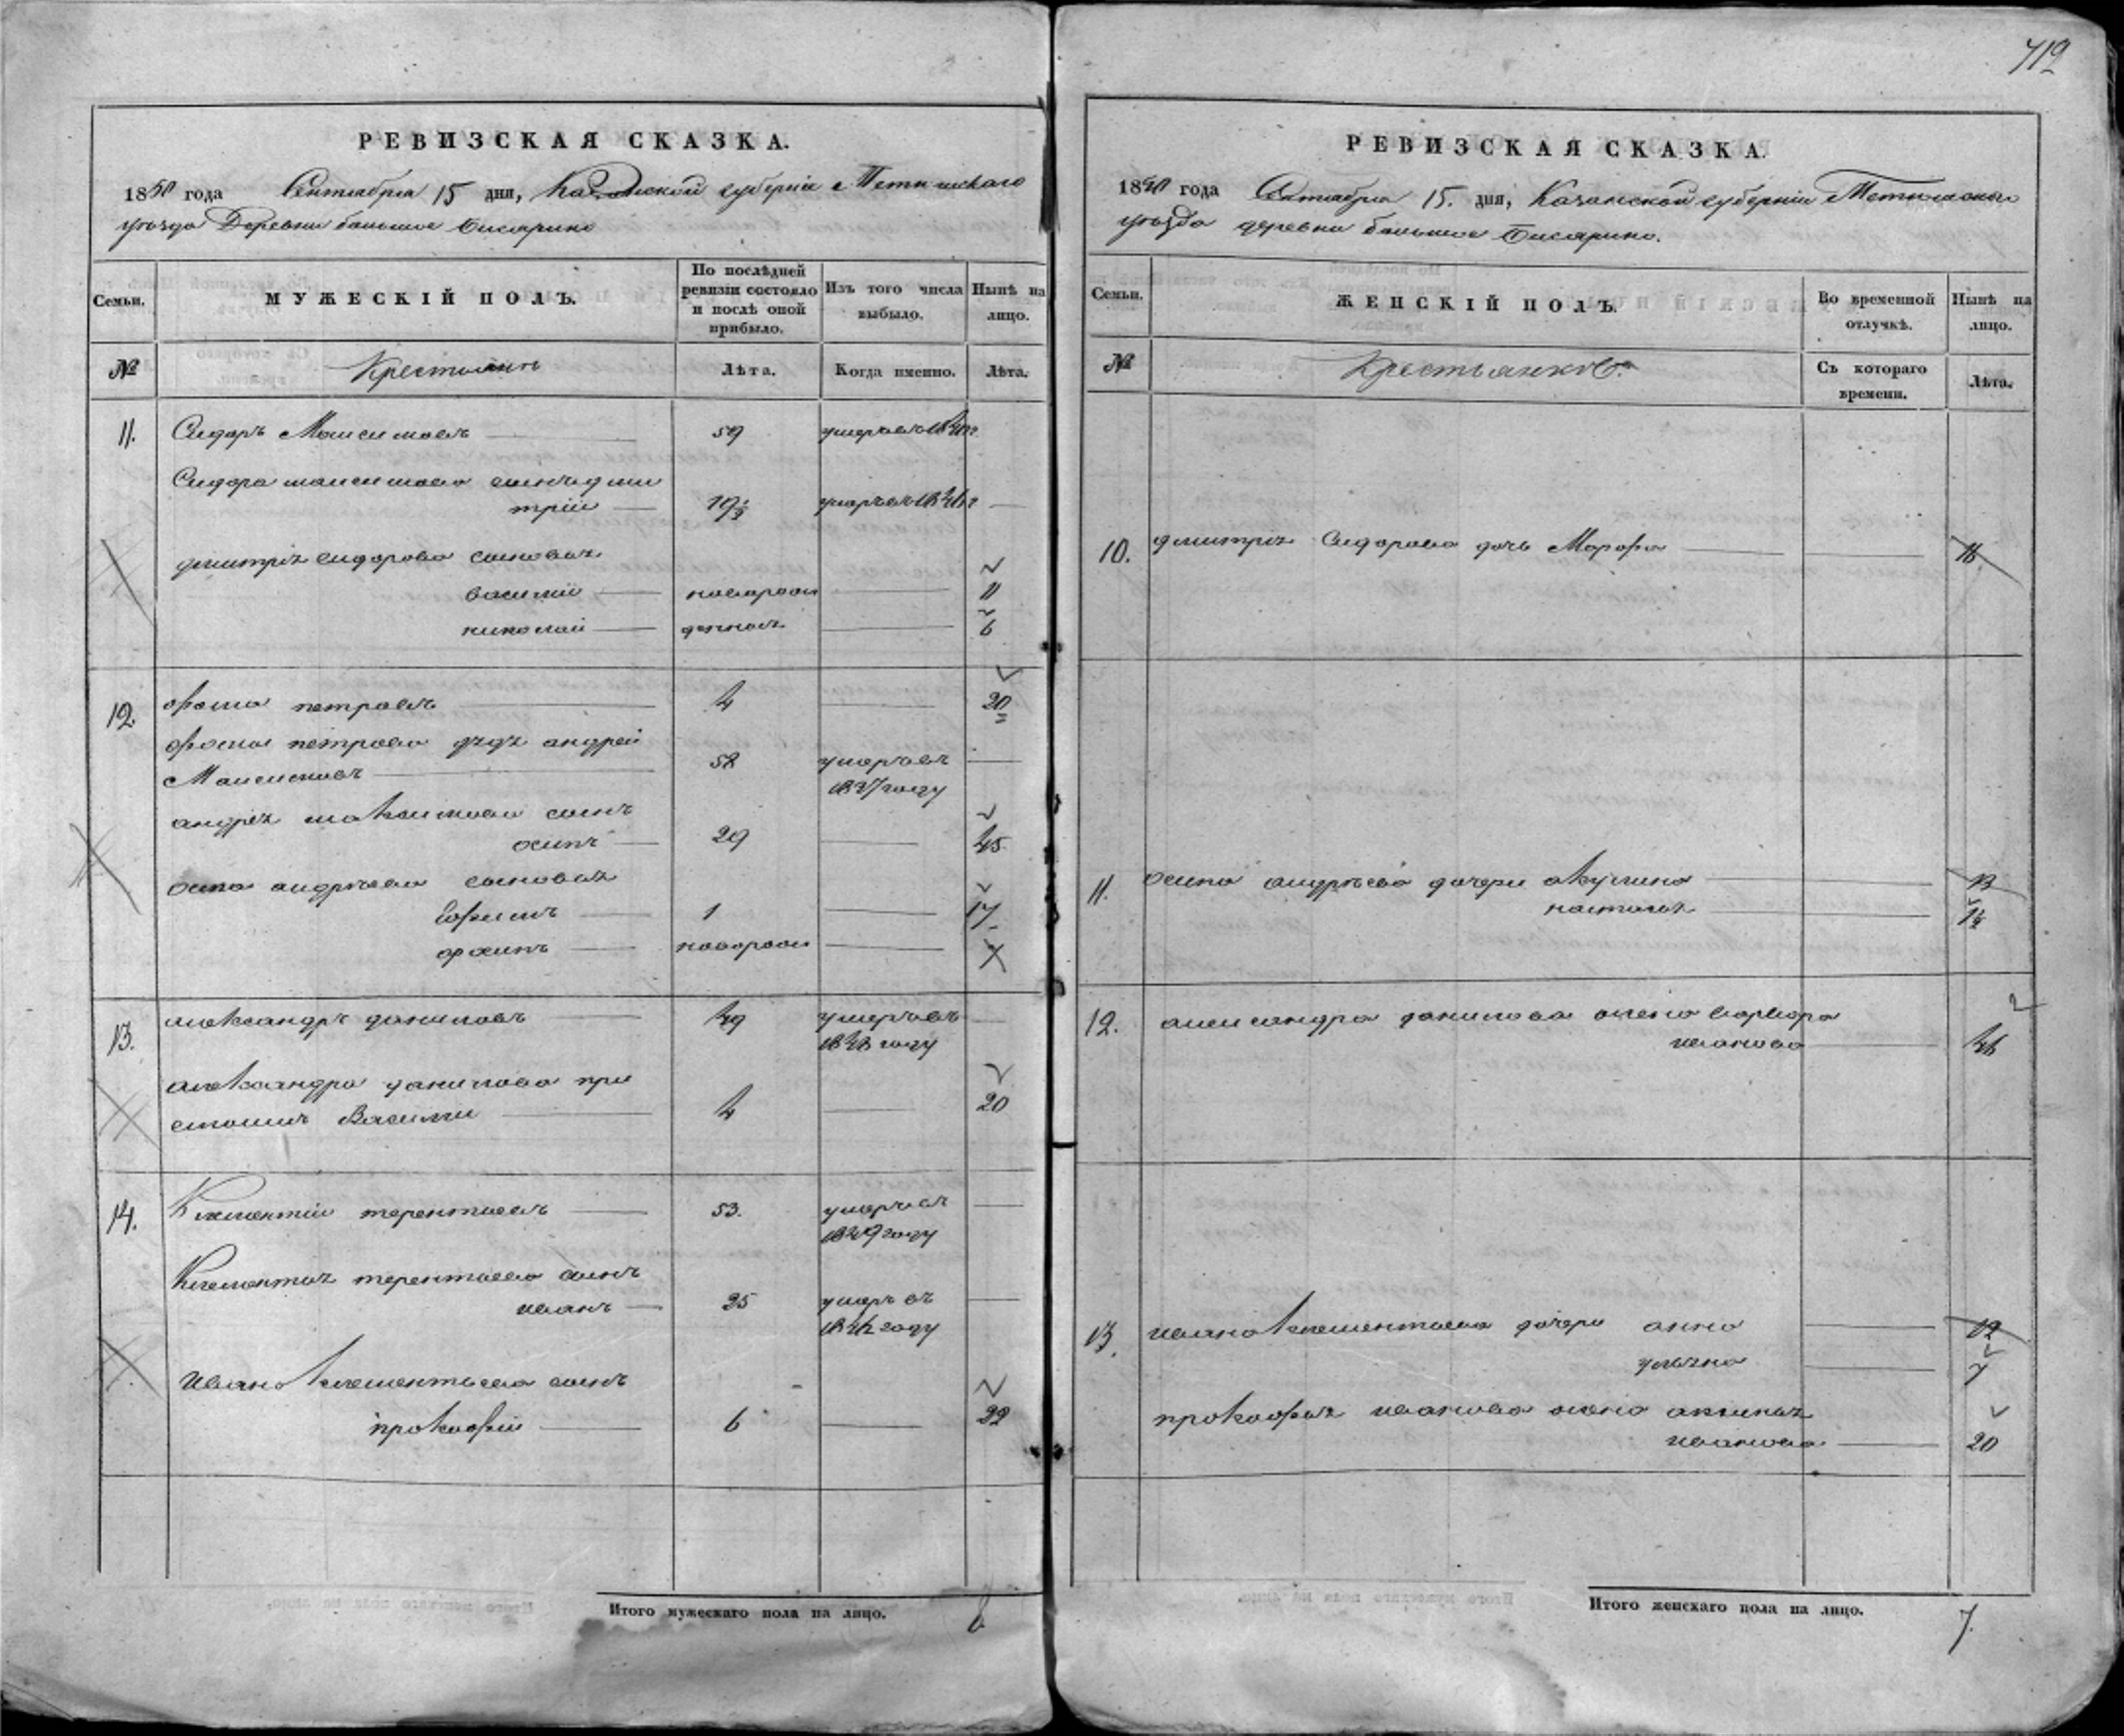 719
РЕВИЗСКАЯ СКАЗКА.
1850 года Сентября 15 дня, Казанской губернии
уезда Деревни большое
Семьи. МУЖЕСКІЙ ПОЛЪ. По послѣдней ревизіи состояло и послѣ оной прибыло. Изъ того числа выбыло. Нынѣ на лицо.
№ Крестьянъ Лѣта. Когда именно. Лѣта.
11. Сидоръ Максимовъ 59 умеръ въ
Сидора максимова сынъ дми
трій умеръ въ
дмитрія сидорова сыновья
василій новорож 11
николай денные 6
12. фома петровъ 4 20
фомы петрова дѣдъ андрей
Максимовъ 58 умеръ въ
1837 году
андрея максимова сынъ
осипъ 29 45
осипа андреева сыновья
Ефимъ 1 17
новорож
13. александръ даниловъ 49 умеръ въ
1848 году
александра данилова прі
емышъ Василій 4 20
14. Клементій терентьевъ 53. умеръ въ
году
Клементья терентьева сынъ
иванъ 25 умеръ въ
году
Ивана клементьева сынъ
прокофій 6 22
Итого мужескаго пола на лицо.
РЕВИЗСКАЯ СКАЗКА.
1850 года Сентября 15. дня, Казанской губерніи
уезда деревни большое
Семьи. ЖЕНСКІЙ ПОЛЪ. Во временной отлучкѣ. Нынѣ на лицо.
№ Крестьянковъ Съ котораго времени. Лѣта.
10. дмитрія Сидорова дочь Марфа 16
11. осипа андреева дочери акулина 13
настасья
12. александра данилова жена варвара
иванова 46
13. ивана клементьева дочери анна 12
ульяна 7
прокофья иванова жена аксинья
иванова 20
Итого женскаго пола на лицо. 7.